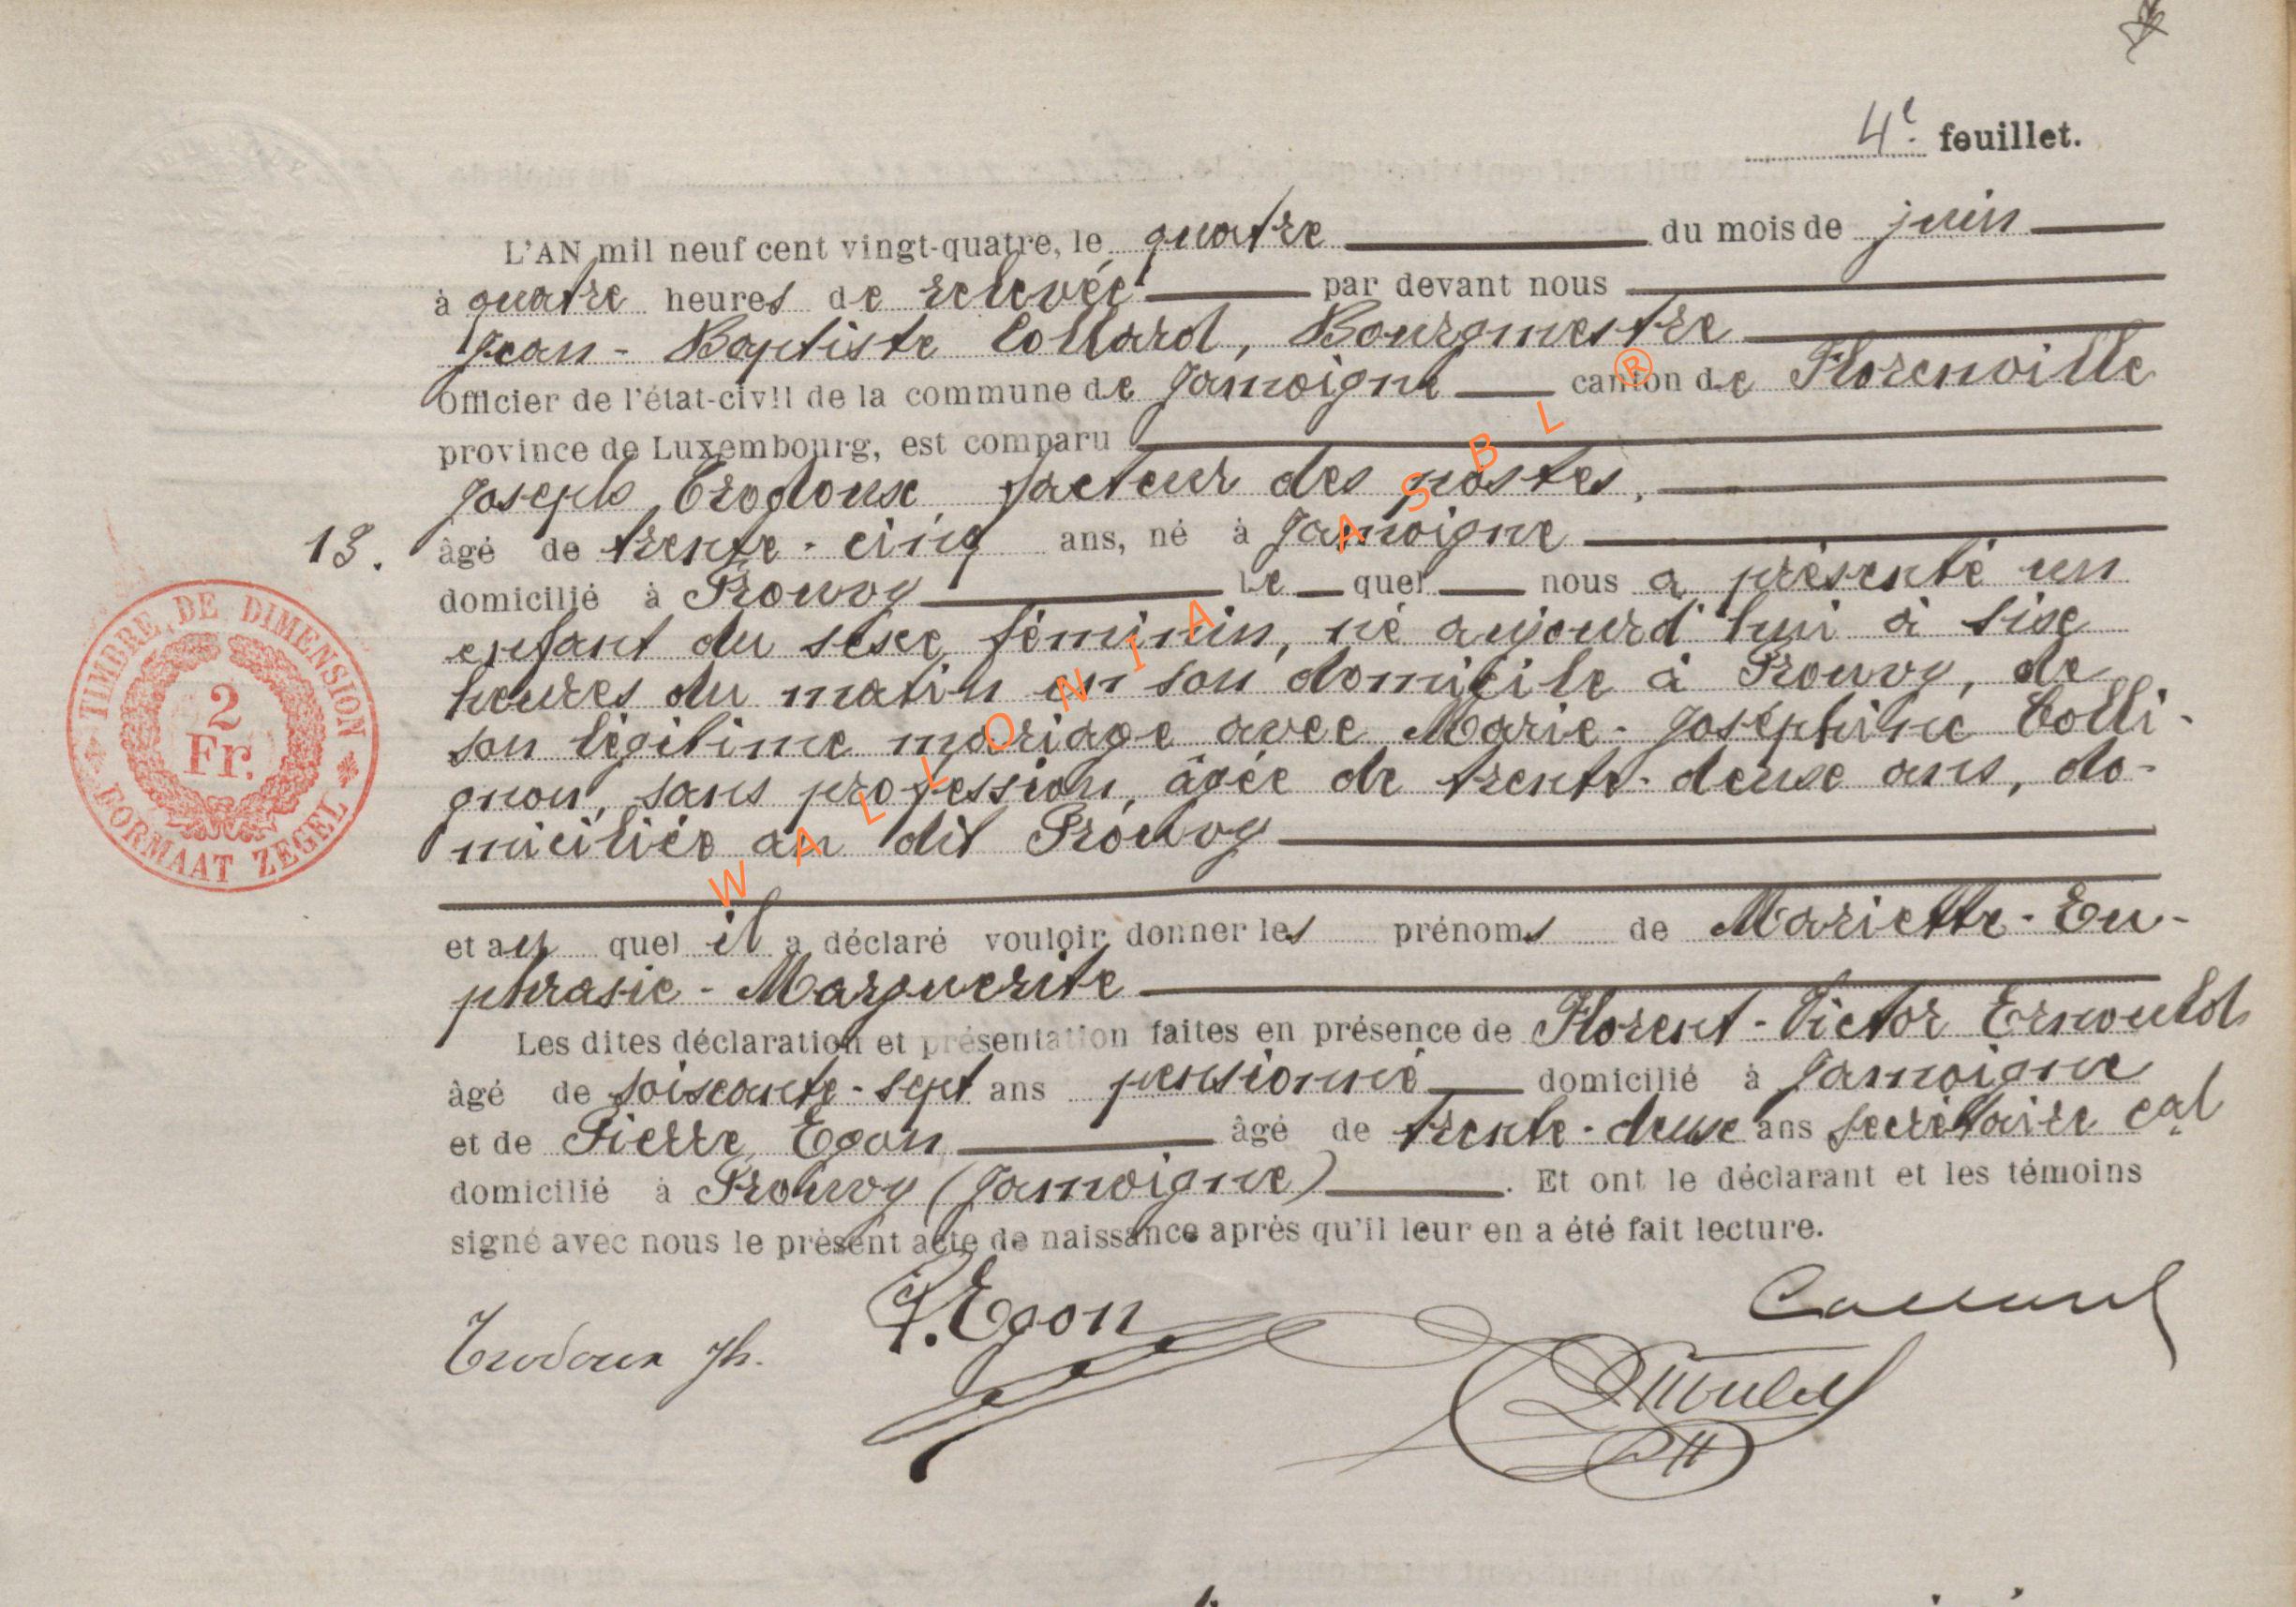 4e feuillet.
L'AN mil neuf cent vingt-quatre, le quatre du mois de juin
à quatre heures de relevée par devant nous
Jean-Baptiste Collard, Bourgmestre
Officier de l'état-civil de la commune de Jamoigne canton de Florenville
province de Luxembourg, est comparu
Joseph Trodoux facteur des postes,
13. âgé de trente-cinq ans, né à Jamoigne
domicilié à Prouvy Le quel nous a présenté un
enfant du sexe féminin, né aujourd'hui à six
heures du matin en son domicile à Prouvy, de
son légitime mariage avec Marie-Joséphine Colli-
gnon, sans profession, âgée de trente-deux ans, do-
miciliée au dit Prouvy
et au quel il a déclaré vouloir donner les prénoms de Mariette-Eu-
phrasie-Marguerite
Les dites déclaration et présentation faites en présence de Florent-Victor Ernould
âgé de soixante-sept ans pensionné domicilié à Jamoigne
et de Pierre Egon âgé de trente-deux ans secrétaire cal
domicilié à Prouvy (Jamoigne). Et ont le déclarant et les témoins
signé avec nous le présent acte de naissance après qu'il leur en a été fait lecture.
Trodoux Jh. P. Egon Collard
Ernould
TIMBRE DE DIMENSION
2
Fr.
FORMAAT ZEGEL
WALLONIA ASBL ®